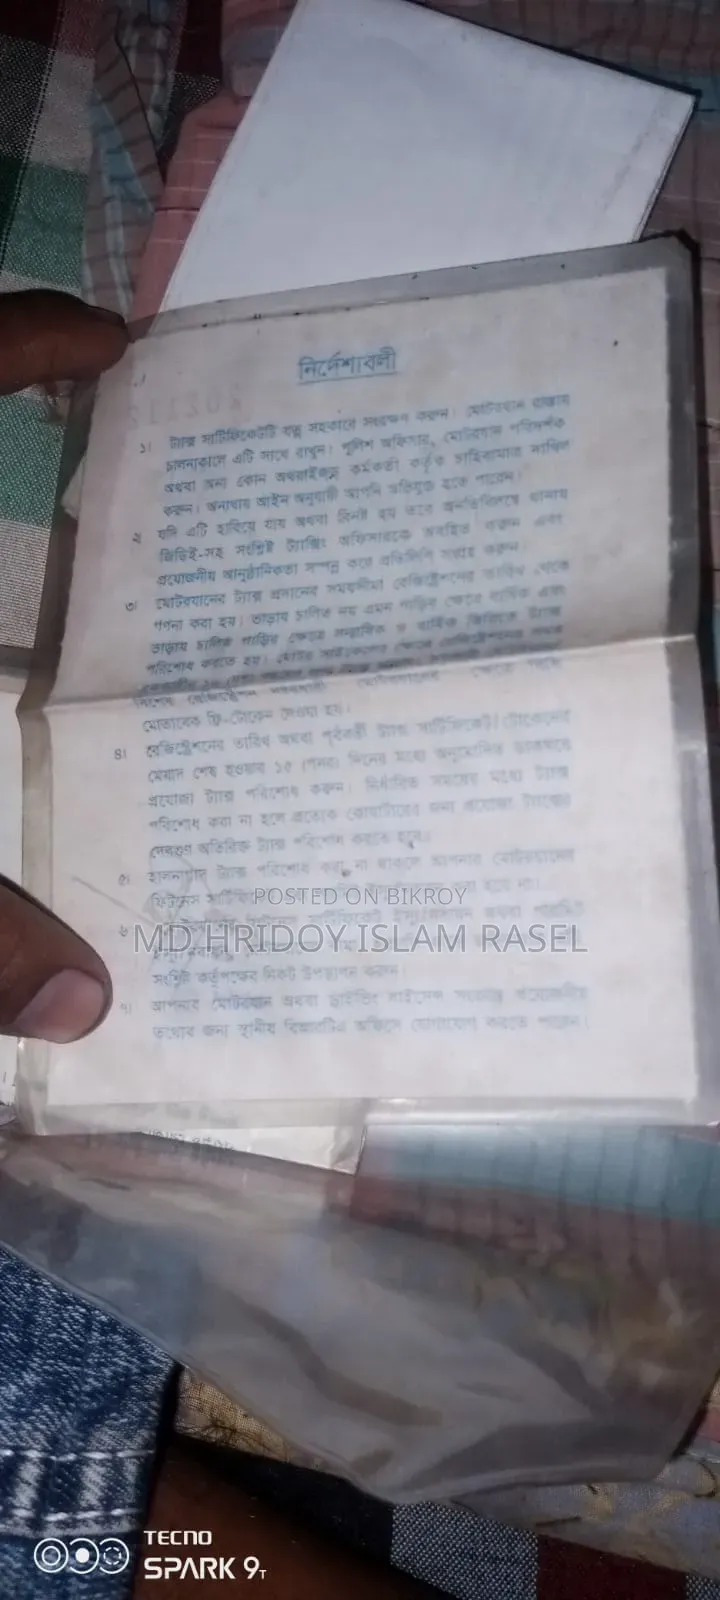 নির্দেশাবলী
১। ট্যাক্স সার্টিফিকেটটি যত্ন সহকারে সংরক্ষণ করুন। মোটরযান রাস্তায়
চালনাকালে এটি সাথে রাখুন। পুলিশ অফিসার, মোটরযান পরিদর্শক
অথবা অন্য কোন অথরাইজড কর্মকর্তা কর্তৃক চাহিবামাত্র দাখিল
করুন। অন্যথায় আইন অনুযায়ী আপনি অভিযুক্ত হতে পারেন।
২ যদি এটি হারিয়ে যায় অথবা বিনষ্ট হয় তবে অনতিবিলম্বে থানায়
জিডিই-সহ সংশ্লিষ্ট ট্যাক্সিং অফিসারকে অবহিত করুন এবং
প্রয়োজনীয় আনুষ্ঠানিকতা সম্পন্ন করে প্রতিলিপি সংগ্রহ করুন।
৩। মোটরযানের ট্যাক্স প্রদানের সময়সীমা রেজিস্ট্রেশনের তারিখ থেকে
গণনা করা হয়। ভাড়ায় চালিত নয় এমন গাড়ির ক্ষেত্রে বার্ষিক এবং
ভাড়ায় চালিত গাড়ির ক্ষেত্রে ষান্মাসিক ও বার্ষিক ভিত্তিতে ট্যাক্স
পরিশোধ করতে হয়। মোটর সাইকেলের ক্ষেত্রে রেজিস্ট্রেশনের সময়
মোতাবেক ফ্রি-টোকেন দেওয়া হয়।
৪। রেজিস্ট্রেশনের তারিখ অথবা পূর্ববর্তী ট্যাক্স সার্টিফিকেট/টোকেনের
মেয়াদ শেষ হওয়ার ১৫ (পনর) দিনের মধ্যে অনুমোদিত ডাকঘরে
প্রযোজ্য ট্যাক্স পরিশোধ করুন। নির্ধারিত সময়ের মধ্যে ট্যাক্স
পরিশোধ করা না হলে প্রত্যেক কোয়ার্টারের জন্য প্রযোজ্য ট্যাক্সের
দেড়গুণ অতিরিক্ত ট্যাক্স পরিশোধ করতে হবে।
৫। হালনাগাদ ট্যাক্স পরিশোধ করা না থাকলে আপনার মোটরযানের
ফিটনেস হবে না।
POSTED ON BIKROY
৬
MD.HRIDOY ISLAM RASEL
সংশ্লিষ্ট কর্তৃপক্ষের নিকট উপস্থাপন করুন।
৭। আপনার মোটরযান অথবা ড্রাইভিং লাইসেন্স সংক্রান্ত প্রয়োজনীয়
তথ্যের জন্য স্থানীয় বিআরটিএ অফিসে যোগাযোগ করতে পারেন।
TECNO
SPARK 9T